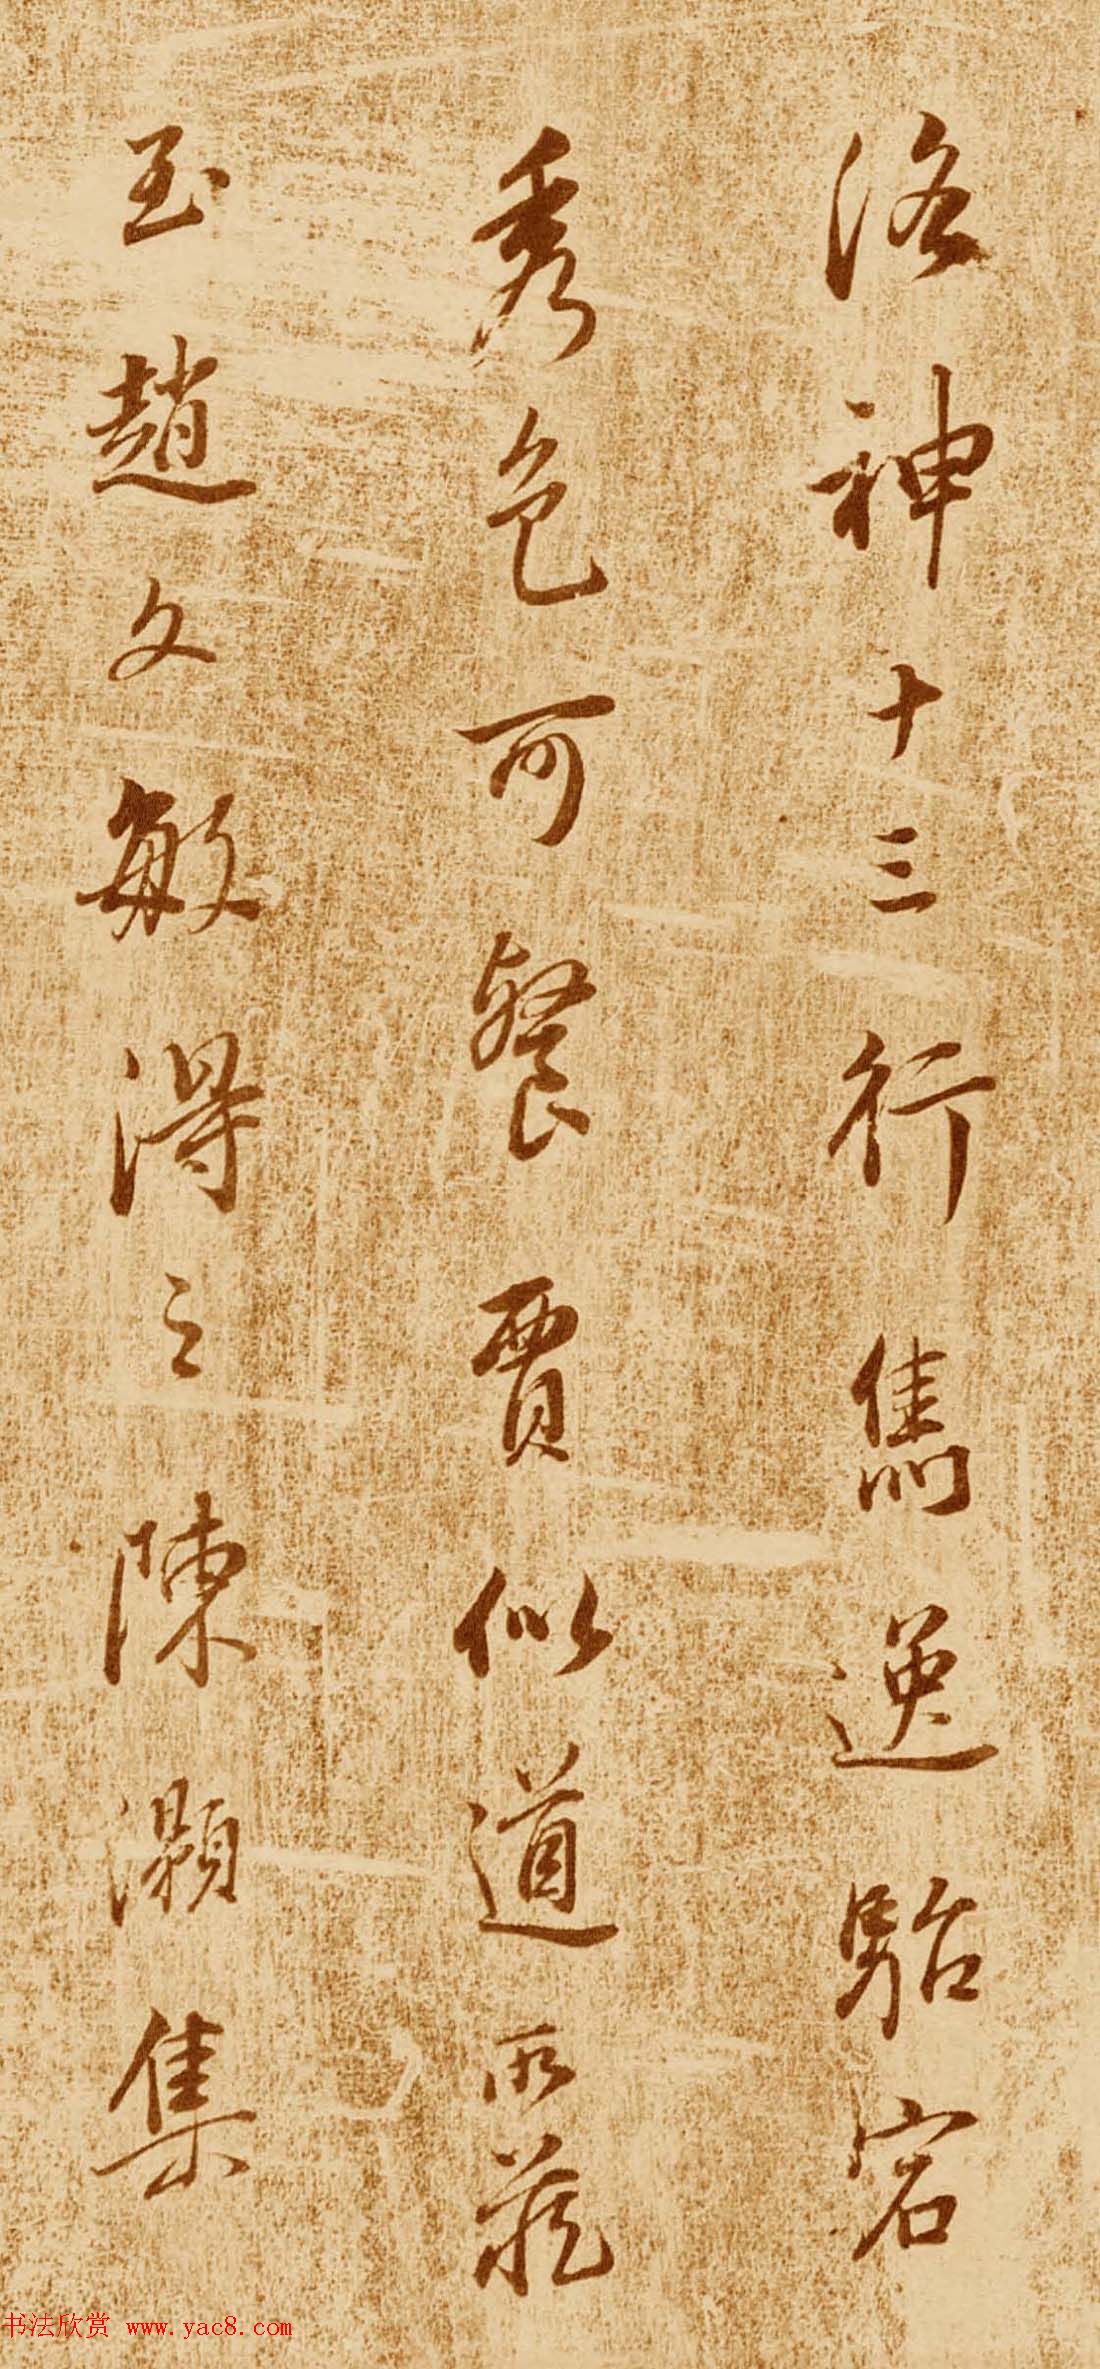 洛神十三行雋逸駘宕
秀色可餐賈似道所藏
至趙文敏得之陳灝集
书法欣赏 www.yac8.com